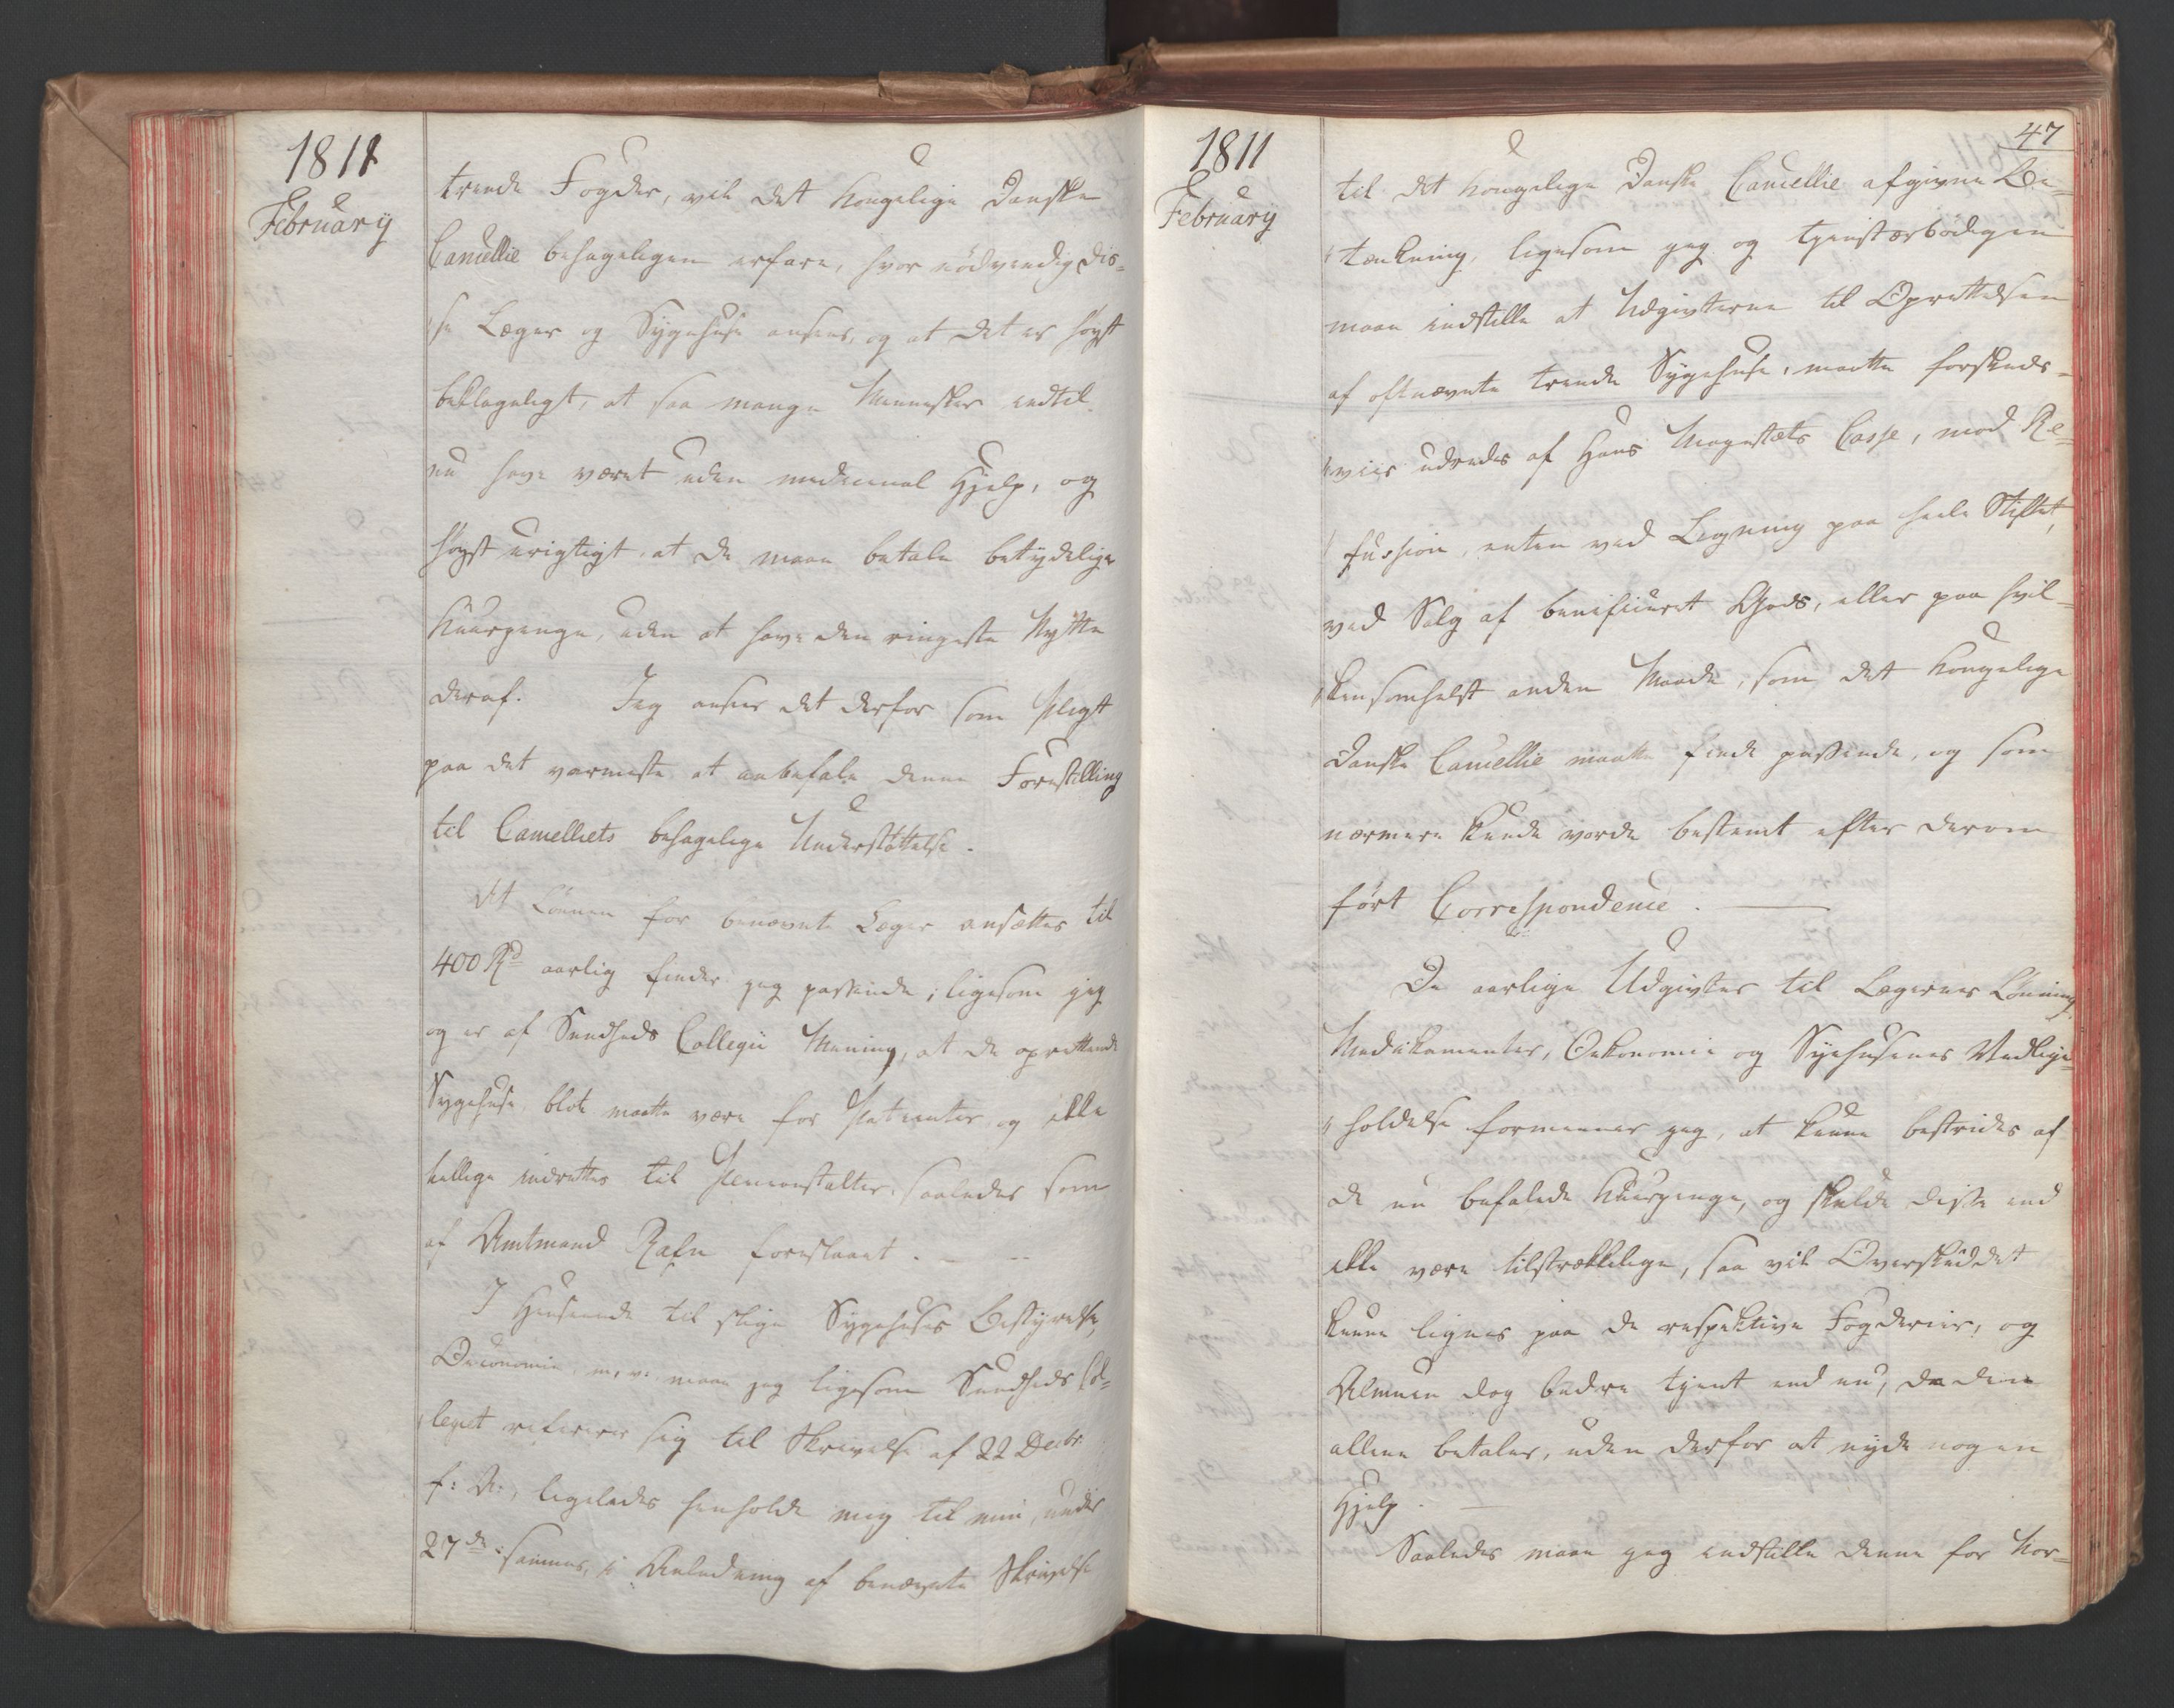 1811
February
trende Fogder, vil det Kongelige Danske
Cancellie behageligen erfare, hvor nødvendig dis-
se Læger og Sygehuse ansees, og at det er høyst
beklageligt, at saa mange Mennesker indtil
nu have været uden medicinal Hjelp, og
høyst urigtigt, at de maae betale betydelige
Kuurpenge, uden at have den ringeste Nytte
deraf. Jeg anseer det derfor som Pligt
paa det varmeste at anbefale denne Forestilling
til Cancelliets behagelige Understøttelse.
At Lønnen for benævnte Læger ansættes til
400 Rd aarlig finder jeg passende; ligesom jeg
og er af Sundheds Collegii Mening, at de oprettende
Sygehuse blot maatte være for Patienter og ikke
tillige indrettes til Pleieanstalter, saaledes som
af Amtmand Rafn foreslaaet. —
I Henseende til slige Sygehuses Bestyrelse,
Oeconomie m. v. maae jeg ligesom Sundheds Col-
legiet refererer sig til Skrivelse af 22 Decbr
f: A:, ligeledes henholde mig til min, under
27de: sammes, i Anledning af benævnte Skrivelse
1811
February
47
til det Kongelige Danske Cancellie afgivne Be-
tænkning, ligesom jeg og tjenstærbødigen
maae indstille at Udgivterne til Oprettelsen
af oftnævnte trende Sygehuse, maatte forskuds-
viis udredes af Hans Majestæts Casse, mod Re-
fussion, enten ved Ligning paa heele Stiftet,
ved Salg af benificeret Gods, eller paa hvil-
kensomhelst anden Maade, som det Kongelige
Danske Cancellie maatte finde passende, og som
nærmere kunde vorde bestemt efter derom
ført Correspondence. —
De aarlige Udgivter til Lægernes Lønning,
Medikamenter, Oekonomie og Sygehusenes Vedlige-
holdelse formener jeg, at kunne bestrides af
de nu befalede Kuurpenge, og skulde disse end
ikke være tilstrækkelige, saa vil Overskuddet
kunne lignes paa de respektive Fogderier, og
Almuen dog bedre tjent end nu, da den
allene betaler, uden derfor at nyde nogen
Hjelp. —
Saaledes maae jeg indstille denne for Nor-